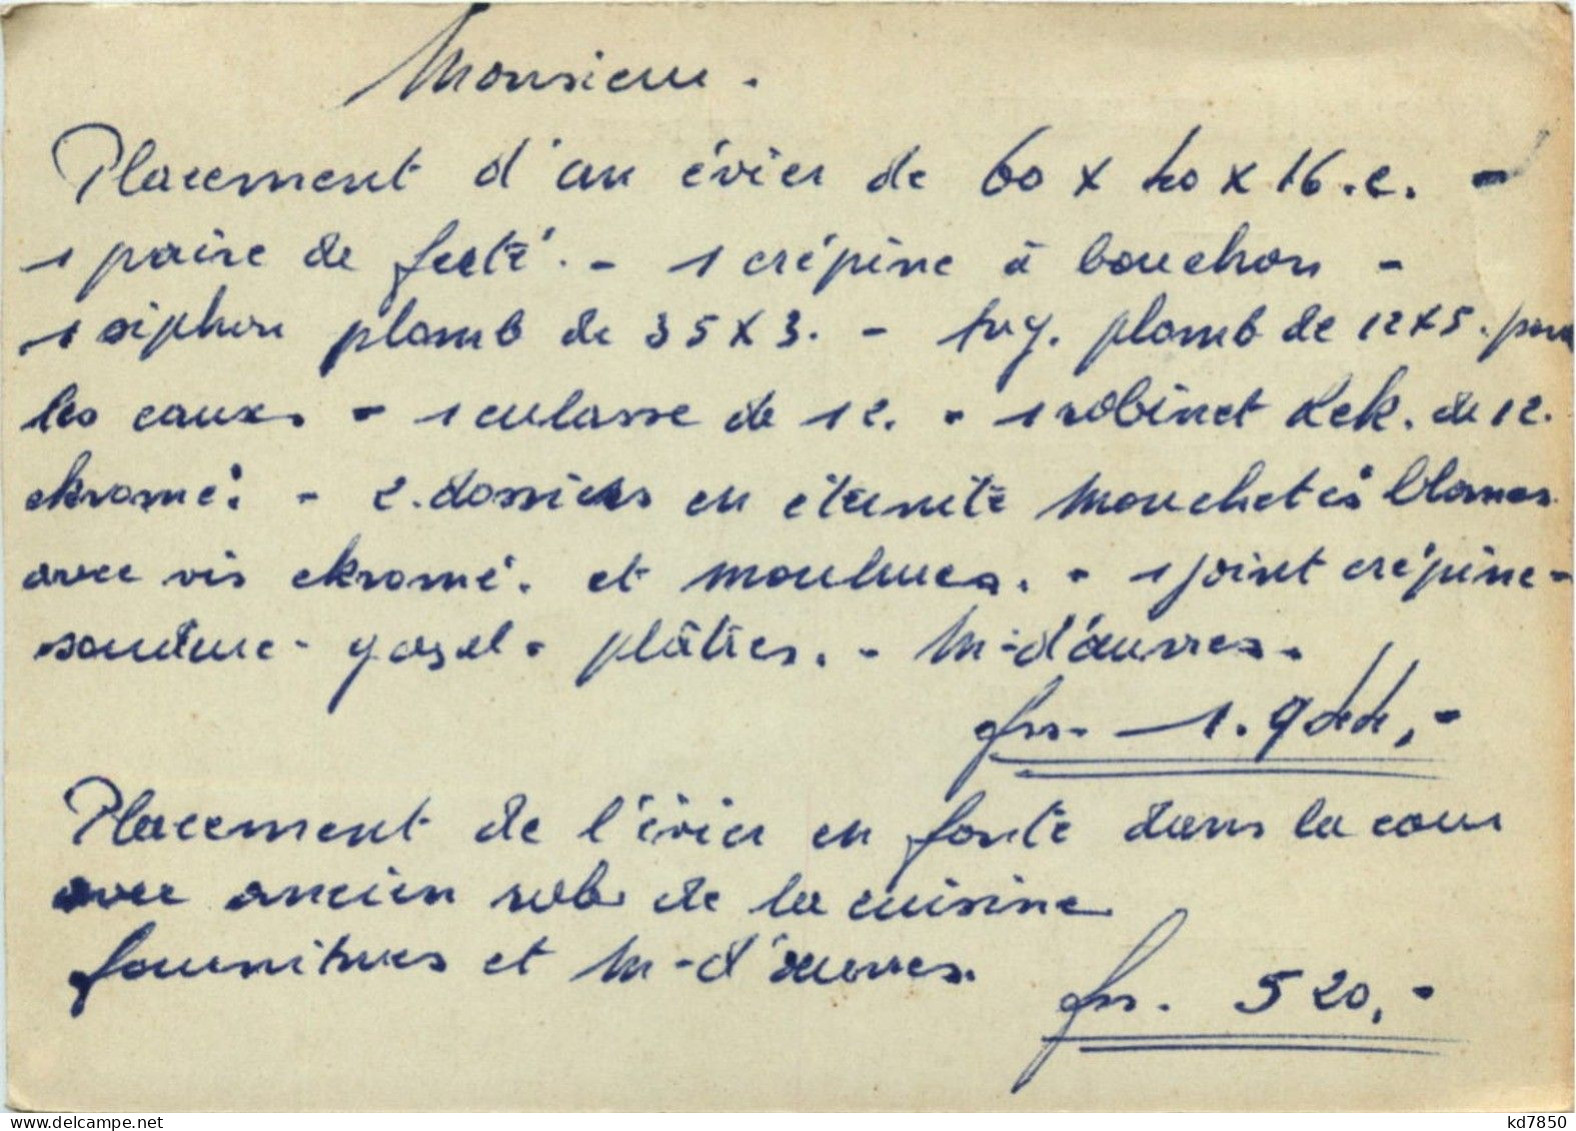 Monsieur.
Placement d'un évier de 60 x 40 x 16.c. -
1 paire de . - 1 crépine à bouchon -
1 siphon plomb de 35 x 3. - tuy. plomb de 12 x 5. pour
les eaux. - 1 culasse de 12. - 1 robinet de 12.
ekromé. - 2. dossiers en éternite mouchetés blancs.
avec vis ekromé. et moulures. - 1 joint crépine -
soudure - gasel - plâtres. - M-d'œuvres.
frs. 1.944,-
Placement de l'évier en fonte dans la cour
avec ancien rob. de la cuisine
fournitures et M-d'œuvres.
frs. 520,-
delcampe.net
kd7850